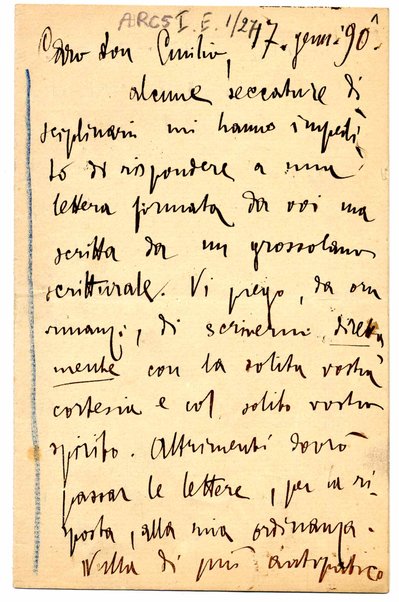 ARC5 I. E. 1/27
17. genn: 90.
Caro don Emilio,
alcune seccature di
sciplinari mi hanno impedi
to di rispondere a una
lettera firmata da voi ma
scritta da un grossolano
scritturale. Vi prego, da ora
innanzi, di scrivermi diretta
mente con la solita vostra
cortesia e col solito vostro
spirito. Altrimenti dovrò
passar le lettere, per la ri-
sposta, alla mia ordinanza.
Nulla di più antipatico